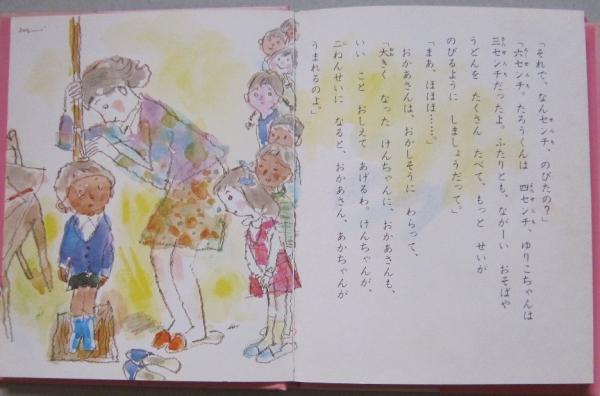 「それで、なんセンチ、のびたの?」
「六センチ。たろうくんは 四センチ、ゆりこちゃんは
三センチだったよ。ふたりとも、ながーい おそばや
うどんを たくさん たべて、もっと せいが
のびるように しましょうだって。」
「まあ、ほほほ……。」
おかあさんは、おかしそうに わらって、
「大きく なった けんちゃんに、おかあさんも、
いい こと おしえて あげるわ。けんちゃんが、
二ねんせいに なると、おかあさん、あかちゃんが
うまれるのよ。」